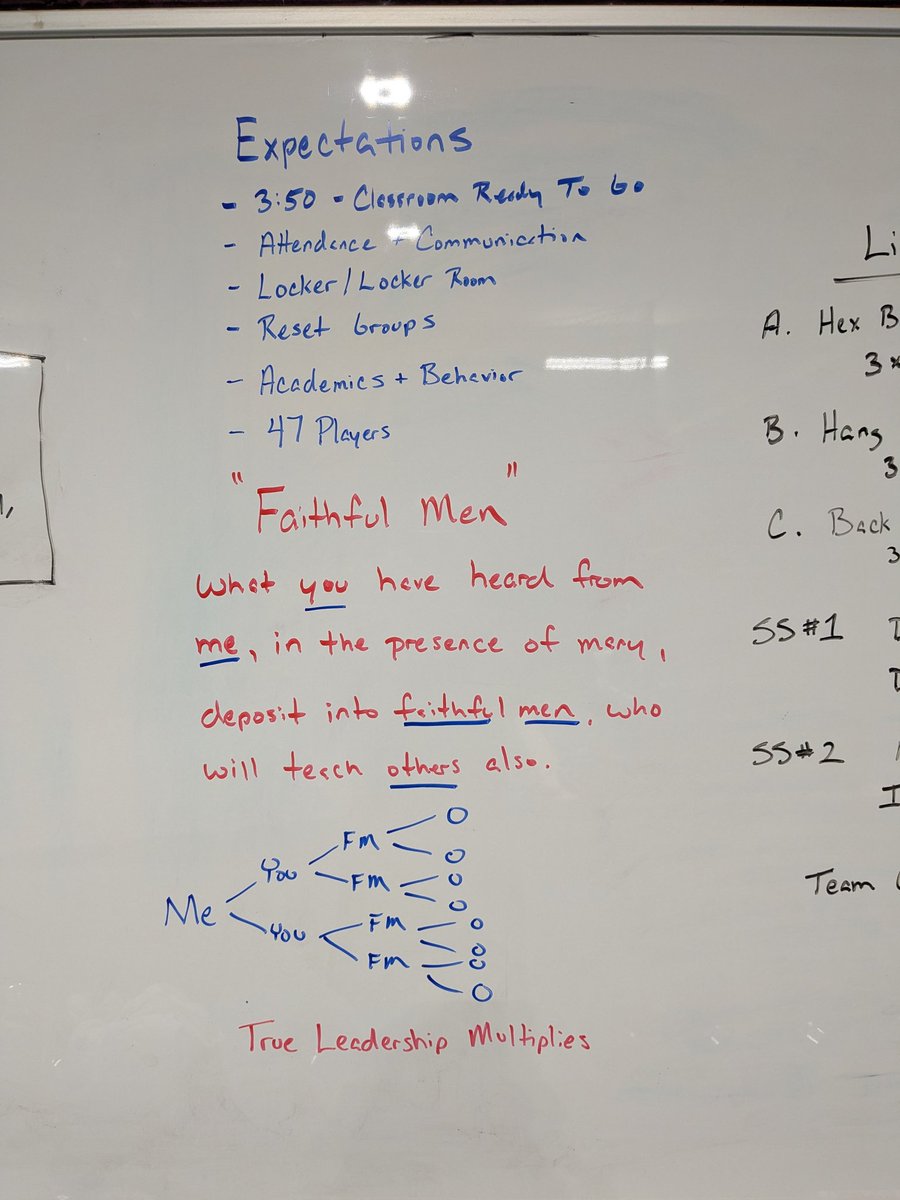 Expectations
- 3:50 - Classroom Ready To Go
- Attendance + Communication
- Locker/Locker Room
- Reset Groups
- Academics + Behavior
- 47 Players
"Faithful Men"
What you have heard from
me, in the presence of many,
deposit into faithful men, who
will teach others also.
Me
You
You
FM
FM
FM
FM
O
O
O
O
O
O
O
O
True Leadership Multiplies
A. Hex B
3
B. Hang
3
C. Back
3
SS#1
SS#2
Team